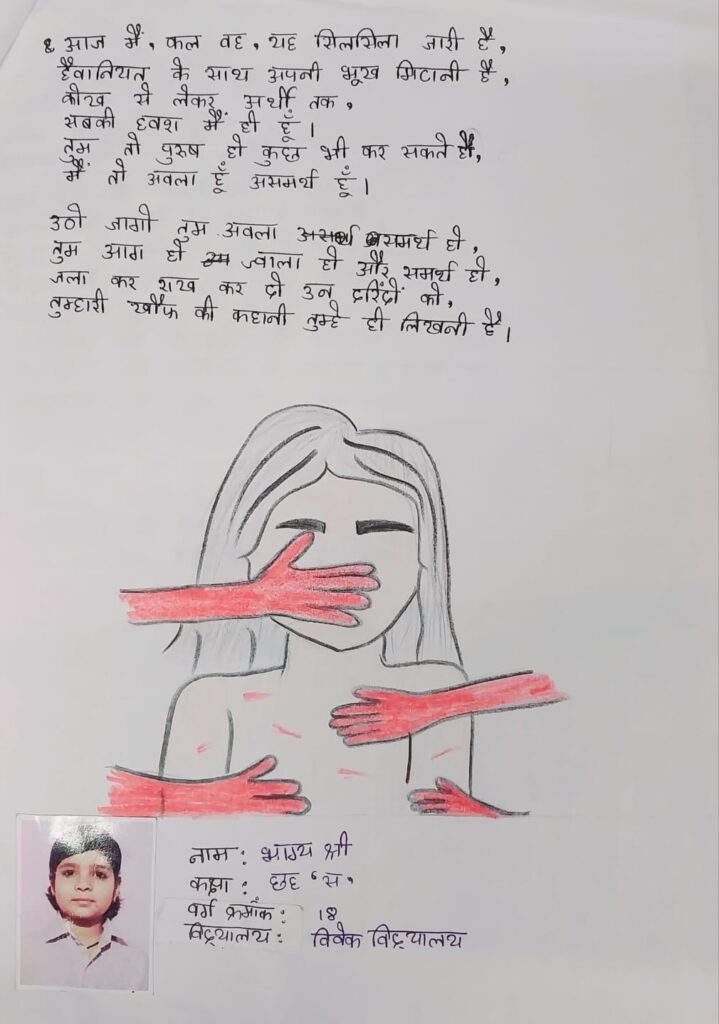 & आज मैं, कल वह, यह सिलसिला जारी है,
हैवानियत के साथ अपनी भूख मिटानी है,
कोख से लेकर अर्थी तक,
सबकी हवश मैं ही हूँ।
तुम तो पुरुष हो कुछ भी कर सकते हो,
मैं तो अवला हूँ असमर्थ हूँ।
उठो जागो तुम अवला समर्थ हो,
तुम आग हो ज्वाला हो और समर्थ हो,
जला कर राख कर दो उन दरिंदों को,
तुम्हारी खौफ की कहानी तुम्हे ही लिखनी है।
नाम: भाग्य श्री
कक्षा: छह 'स'
वर्ग क्रमाँक: 18
विद्यालय: विवेक विद्यालय